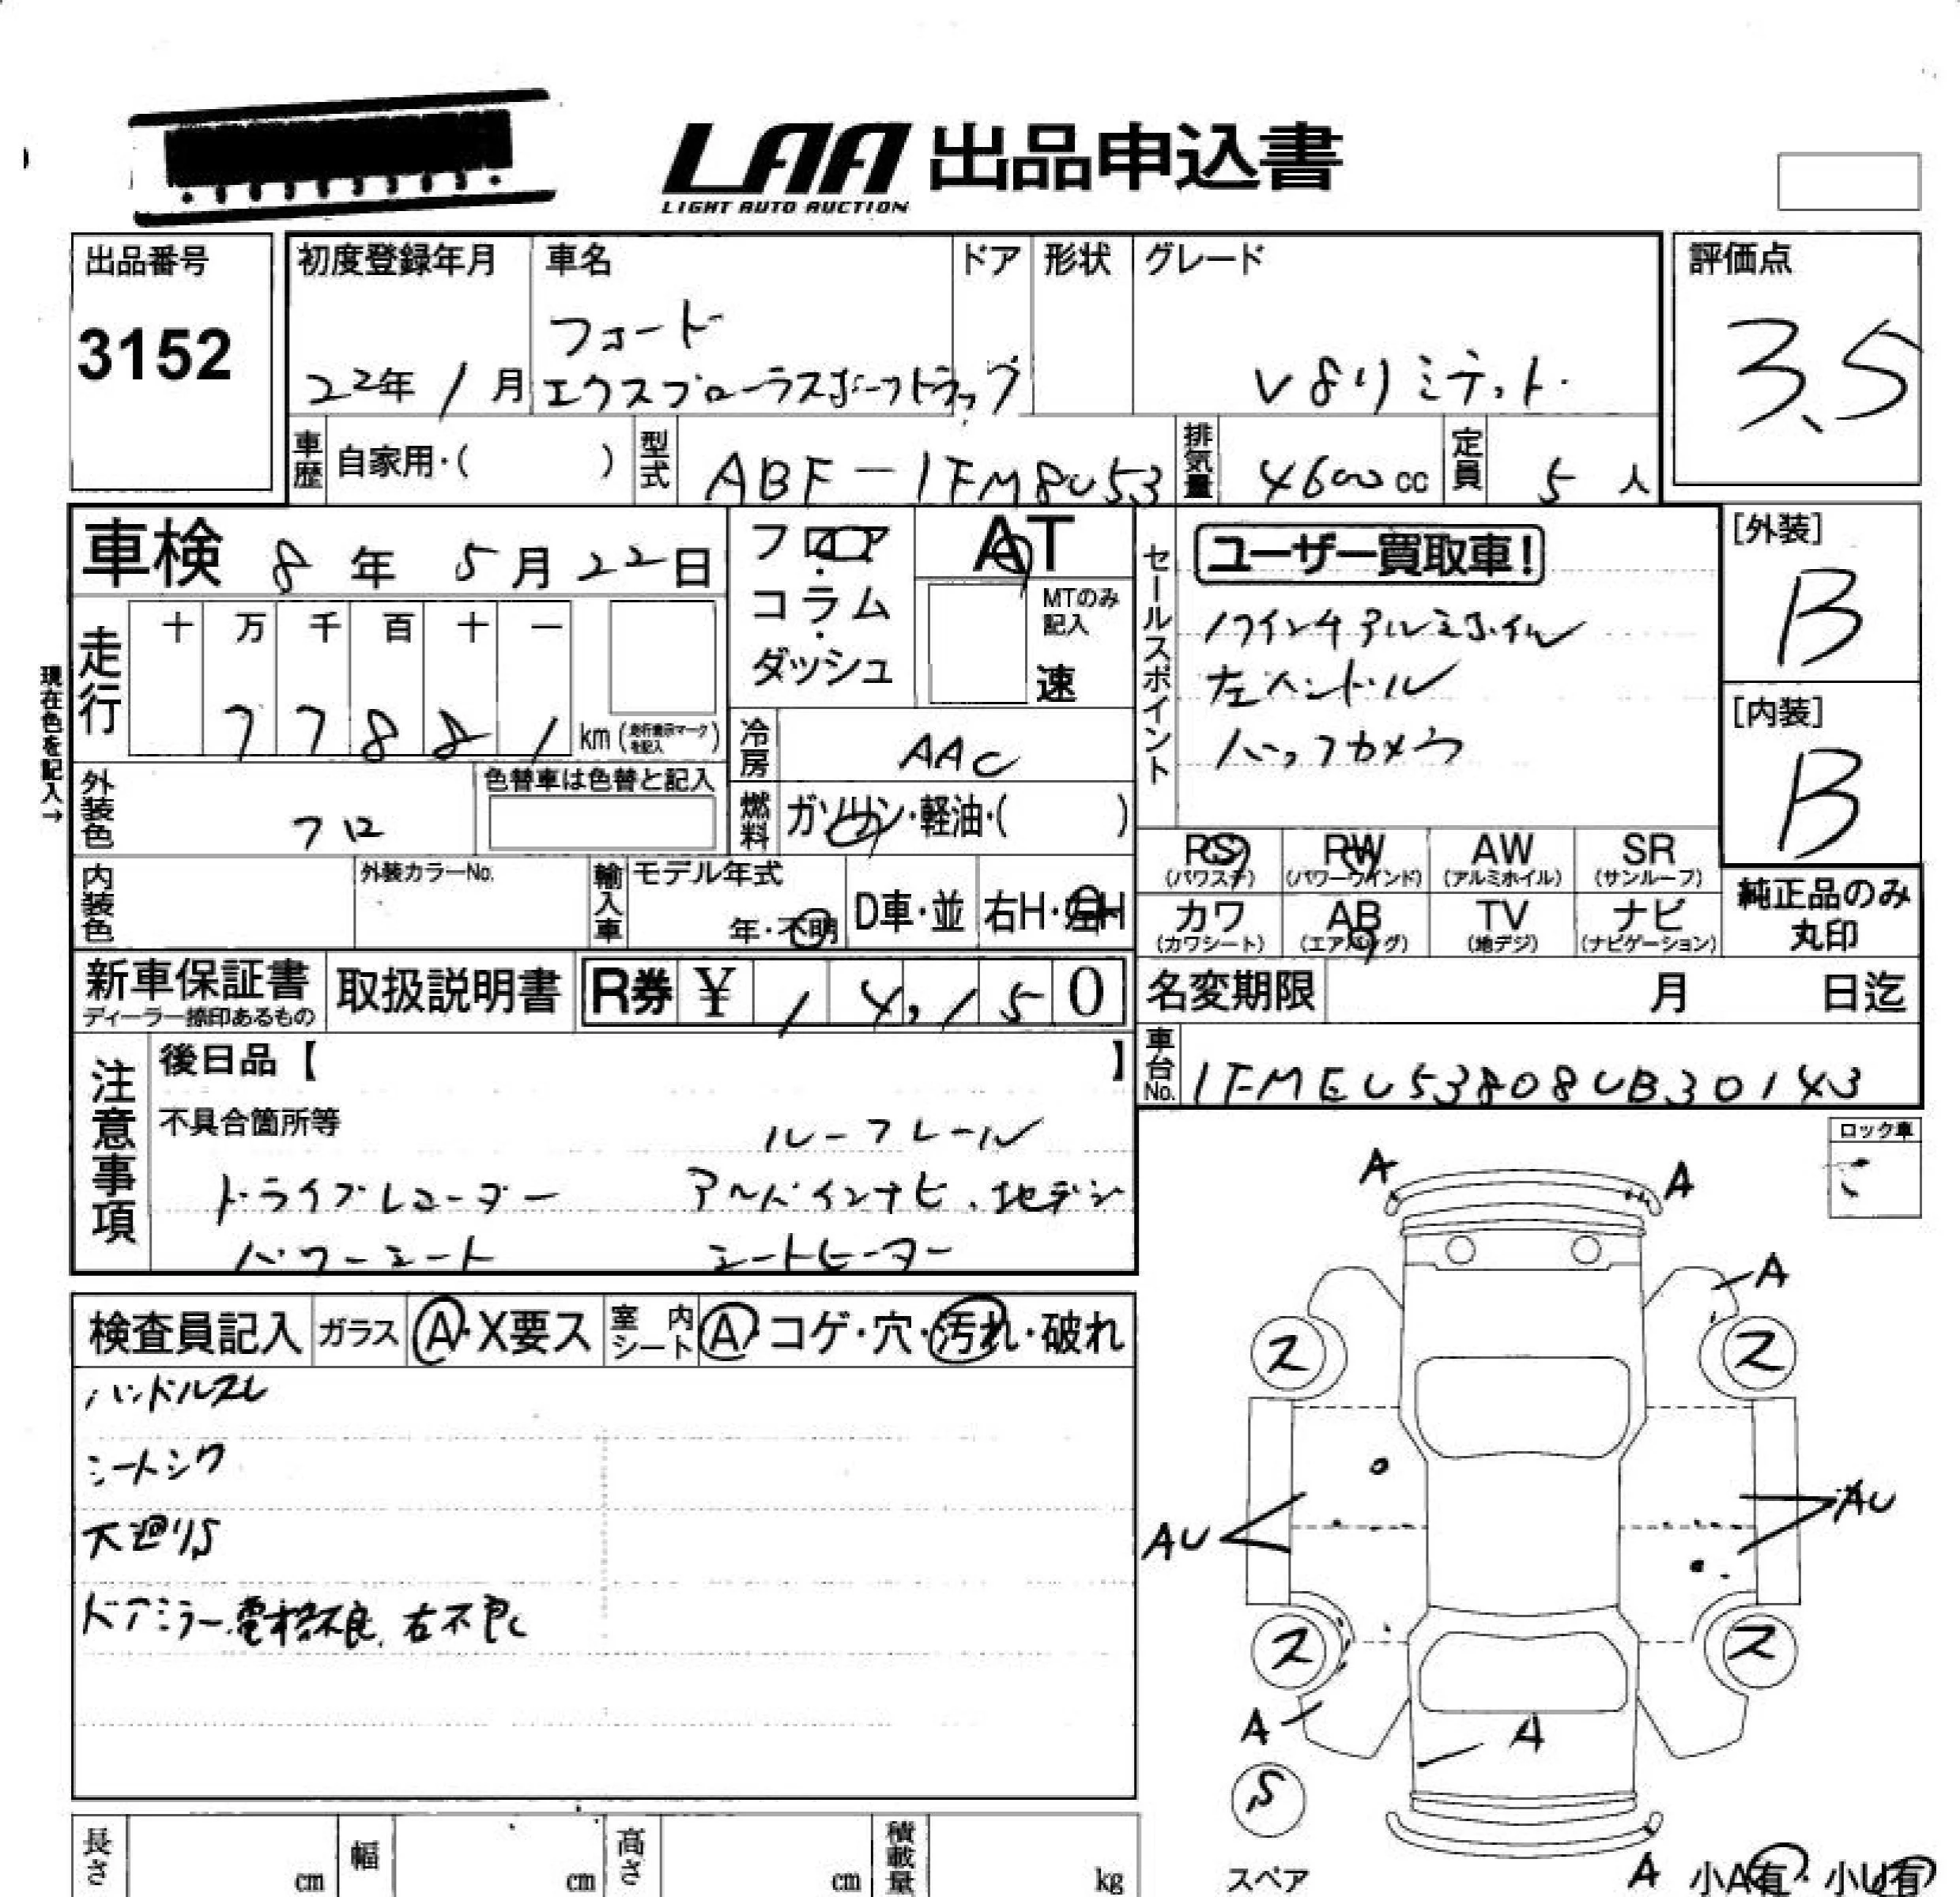 LAA 出品申込書
LIGHT AUTO AUCTION
出品番号
3152
初度登録年月
22年 1月
車名
フォード
エクスプローラスポーツトラック
ドア
形状
グレード
V8リミテット
評価点
3.5
車歴
自家用・( )
型式
ABF-1FM8U53
排気量
4600cc
定員
5人
車検 8年 5月 22日
フロア・コラム・ダッシュ
AT
MTのみ記入
速
セールスポイント
ユーザー買取車!
アルミホイル
左ハンドル
バックカメラ
[外装]
B
[内装]
B
現在色を記入→
走行
十 万 千 百 十 一
7 7 8 8 1 km
冷房
AAC
外装色
クロ
色替車は色替と記入
燃料
ガソリン・軽油・( )
内装色
外装カラーNo.
輸入車
モデル年式
年・不明
D車・並
右H・左H
PS
(パワステ)
PW
(パワーウインド)
AW
(アルミホイル)
SR
(サンルーフ)
カワ
(カワシート)
AB
(エアバッグ)
TV
(地デジ)
ナビ
(ナビゲーション)
純正品のみ
丸印
新車保証書
ディーラー捺印あるもの
取扱説明書
R券 ¥ 14,150
名変期限 月 日迄
車台No.
1FMEU53808UB30143
注意事項
後日品【 】
不具合箇所等
ルーフレール
ドライブレコーダー アルパインナビ、地デジ
パワーシート シートヒーター
ロック車
検査員記入
ガラス
A・X要ス
室内シート
A・コゲ・穴・汚れ・破れ
ハンドルスレ
シートシワ
下廻りS
ドアミラー電格不良、右不良
A
A
A
ス
ス
AU
AU
ス
ス
A
A
S
スペア
A
小A有・小U有
長さ cm
幅 cm
高さ cm
積載量 kg